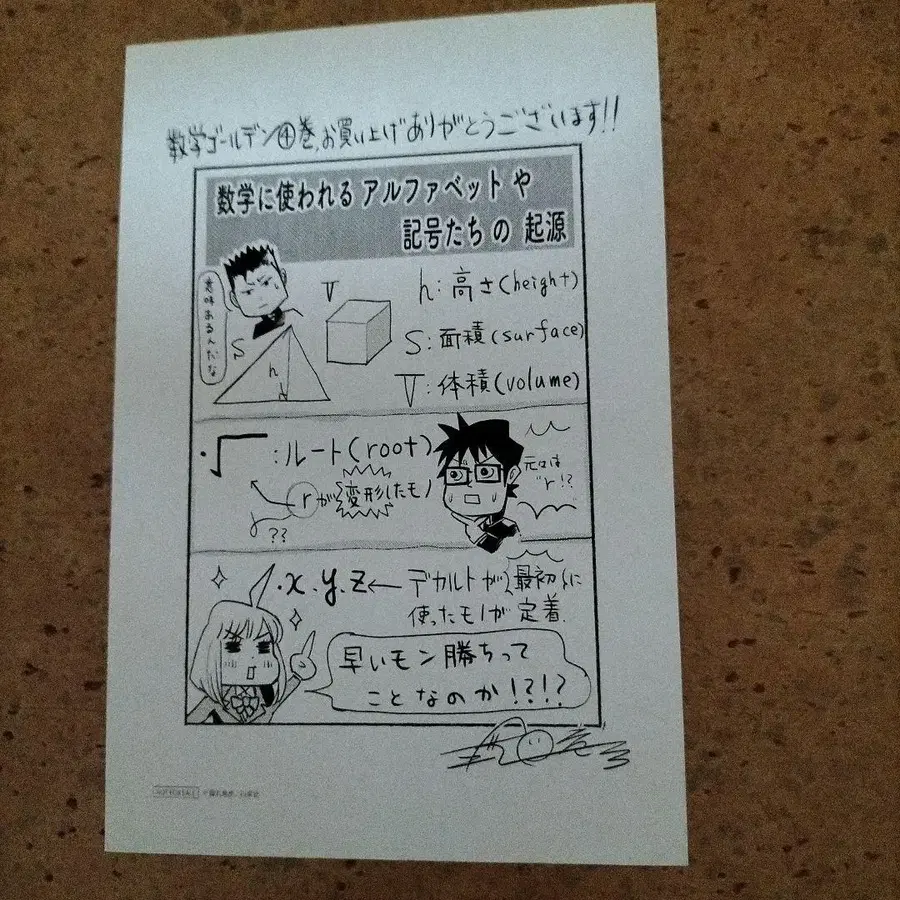 数学ゴールデン④巻、お買い上げありがとうございます!!
数学に使われる アルファベット や
記号たち の 起源
意味あるんだな
S
h
V
h:高さ(height)
S:面積(surface)
V:体積(volume)
・√ :ルート(root)
rが変形したモノ
??
元々は
"r"!?
・x.y.z←デカルトが最初に
使ったモノが定着.
早いモン勝ちって
ことなのか!?!?
NOT FOR SALE